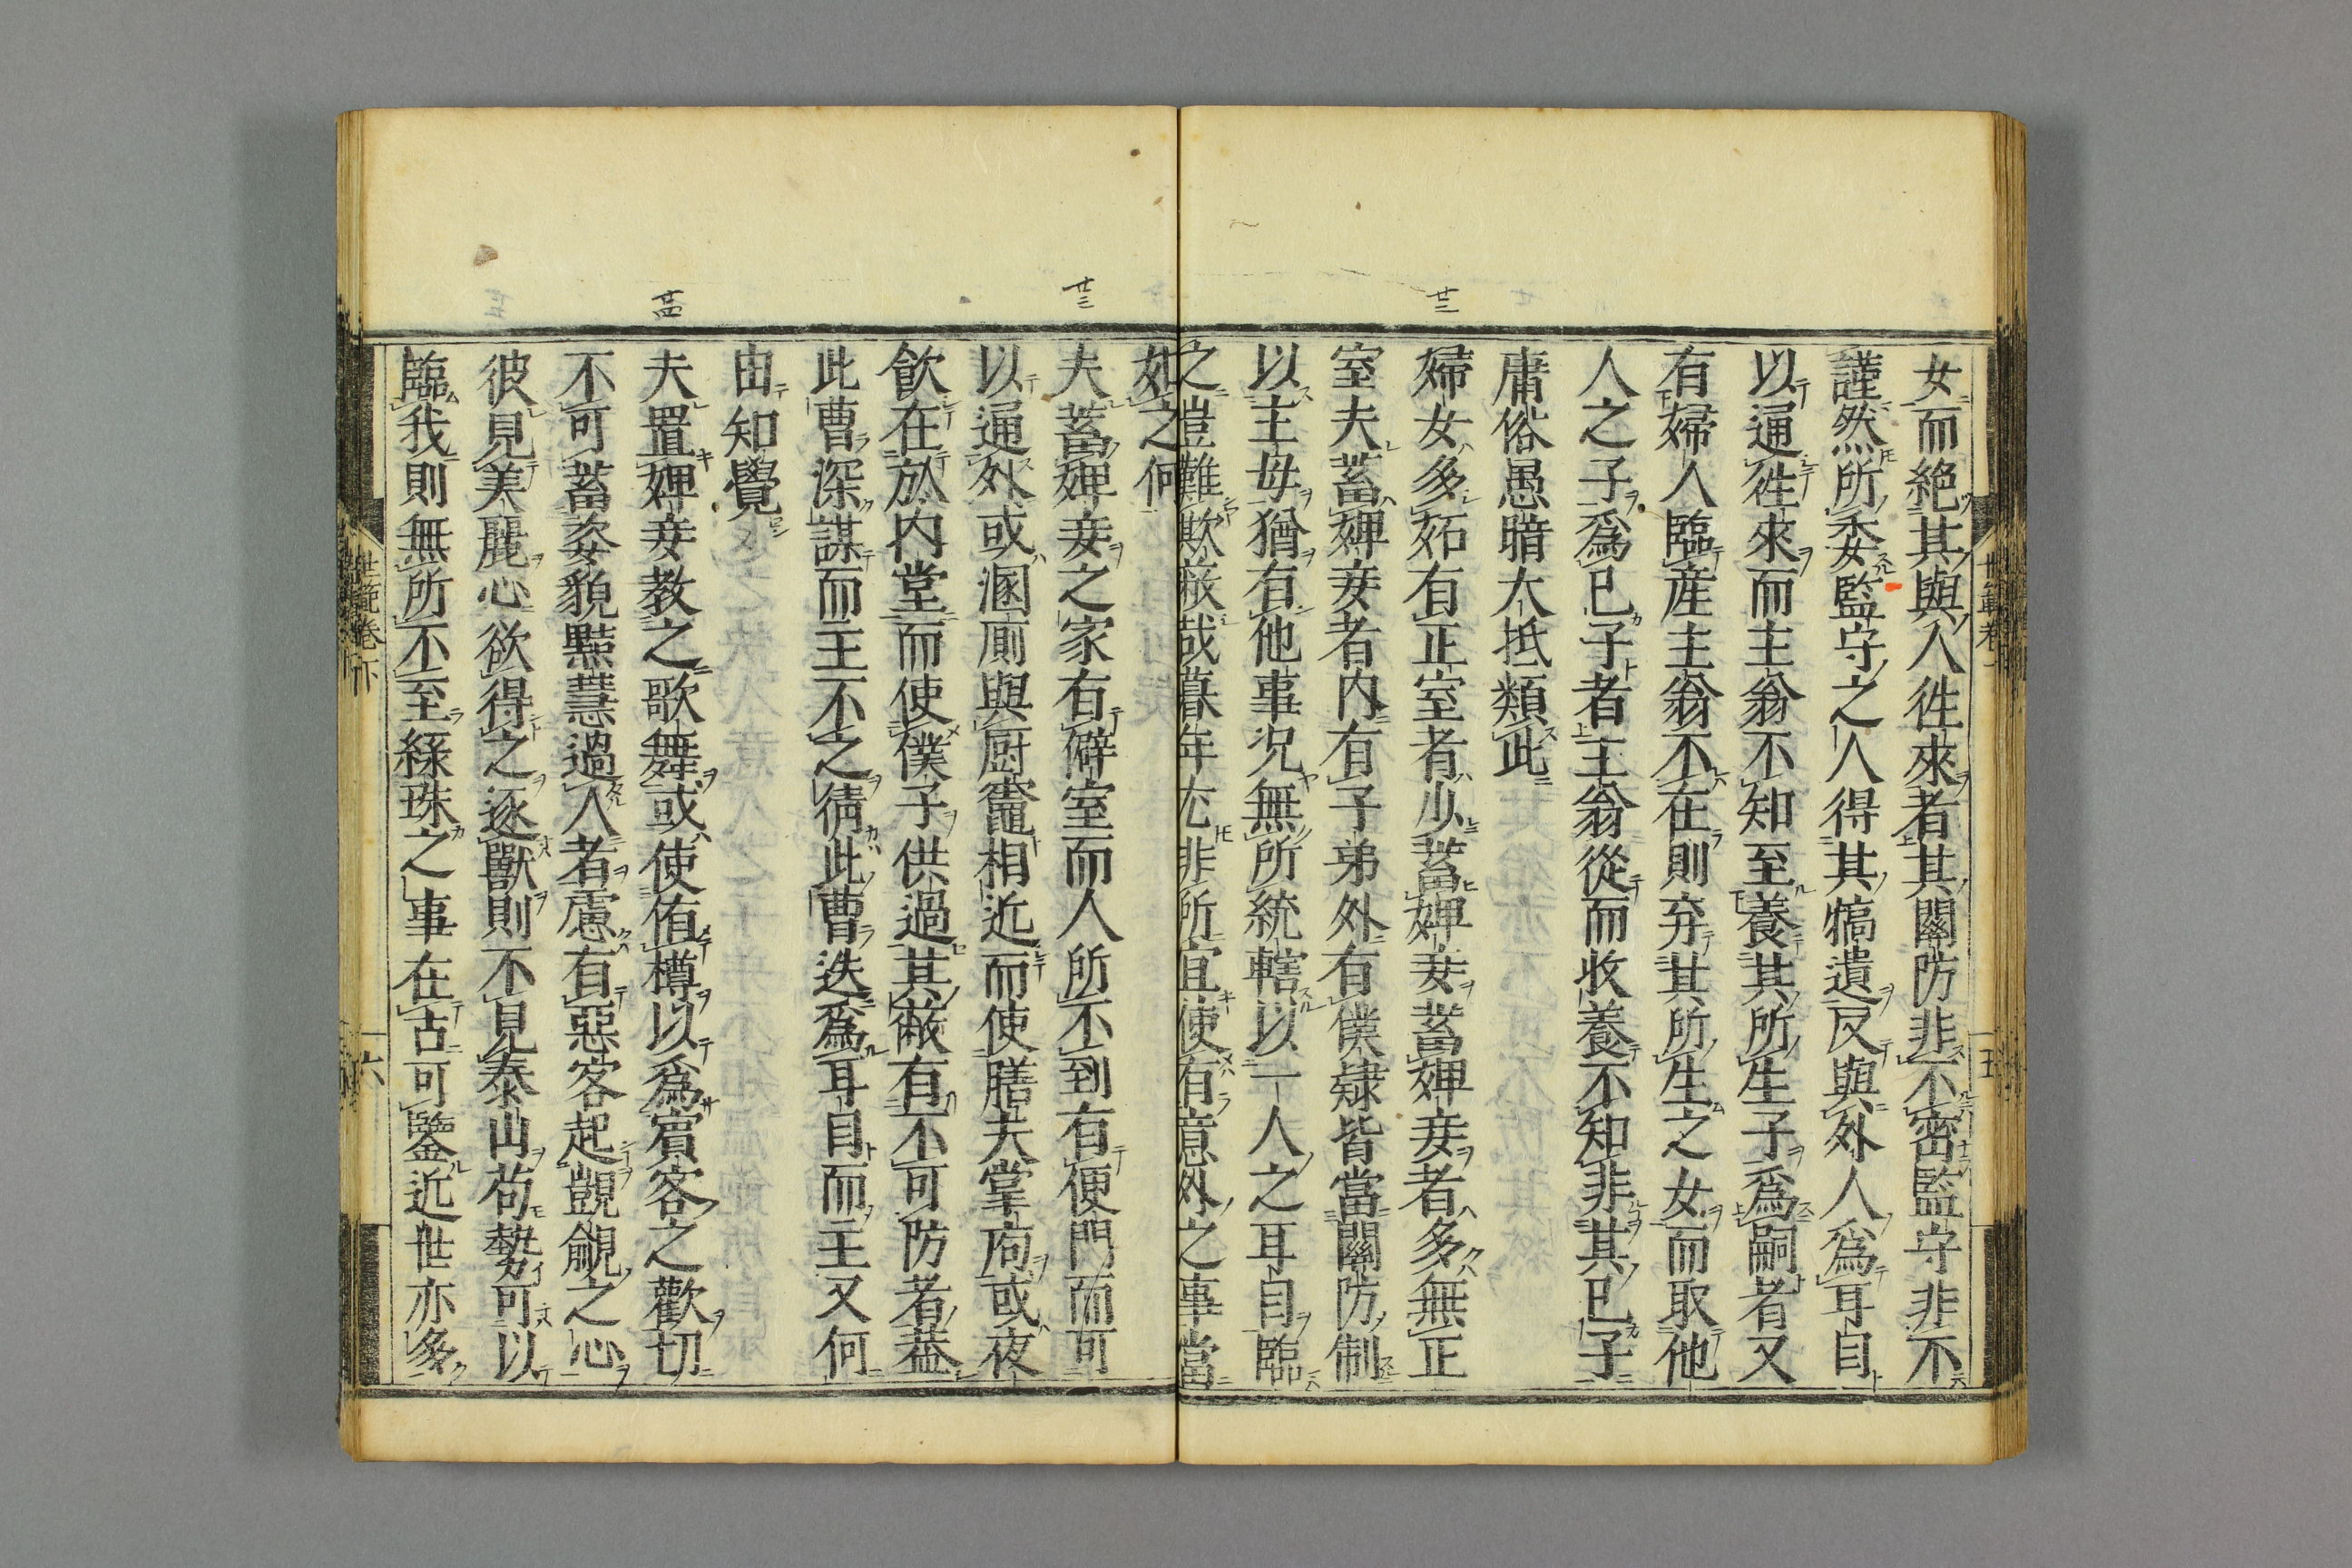 女而絶其與人徃來者其關防非不密監守非不
謹然所委監守之人得其犒遺反與外人爲耳目
以通徃來而主翁不知至養其所生子爲嗣者又
有婦人臨産主翁不在則弃其所生之女而取他
人之子爲已子者主翁從而收養不知非其已子
庸俗愚暗大抵類此
廿二
婦女多妬有正室者少蓄婢妾蓄婢妾者多無正
室夫蓄婢妾者内有子弟外有僕隷皆當關防制
以主母猶有他事況無所統轄以一人之耳目臨
之豈難欺蔽哉暮年尤非所宜使有意外之事當
如之何
廿三
夫蓄婢妾之家有僻室而人所不到有便門而可
以通外或溷厠與厨竈相近而使膳夫掌庖或夜
飮在於内堂而使僕子供過其蔽有不可防者葢
此曹深謀而主不之猜此曹迭爲耳目而主又何
由知覺
廿四
夫置婢妾教之歌舞或使侑樽以爲賓客之歡切
不可蓄姿貌黠慧過人者慮有惡客起覬覦之心
彼見美麗心欲得之逐獸則不見泰山苟勢可以
臨我則無所不至緑珠之事在古可鑒近世亦多
世範卷下
十六